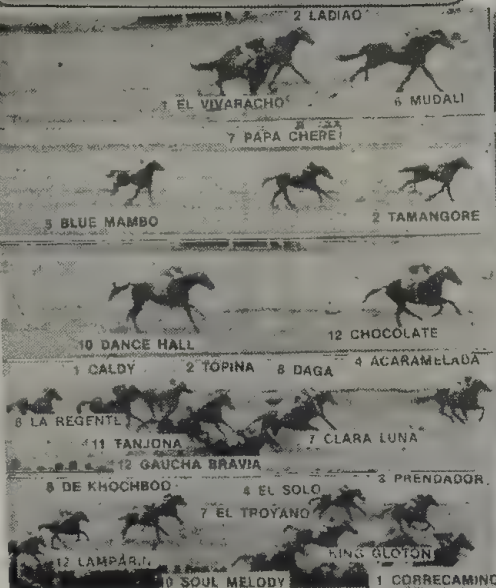 2 LADIAO
1 EL VIVARACHO 6 MUDALI
7 PAPA CHERE
5 BLUE MAMBO 2 TAMANGORE
10 DANCE HALL 12 CHOCOLATE
1 CALDY 2 TOPINA 8 DAGA 4 ACARAMELADA
6 LA REGENTE
11 TANJONA 7 CLARA LUNA
12 GAUCHA BRAVIA
8 DE KHOCHBOD 4 EL SOLO 3 PRENDADOR
7 EL TROYANO
12 LAMPARIN KING GLOTON
10 SOUL MELODY 1 CORRECAMINO